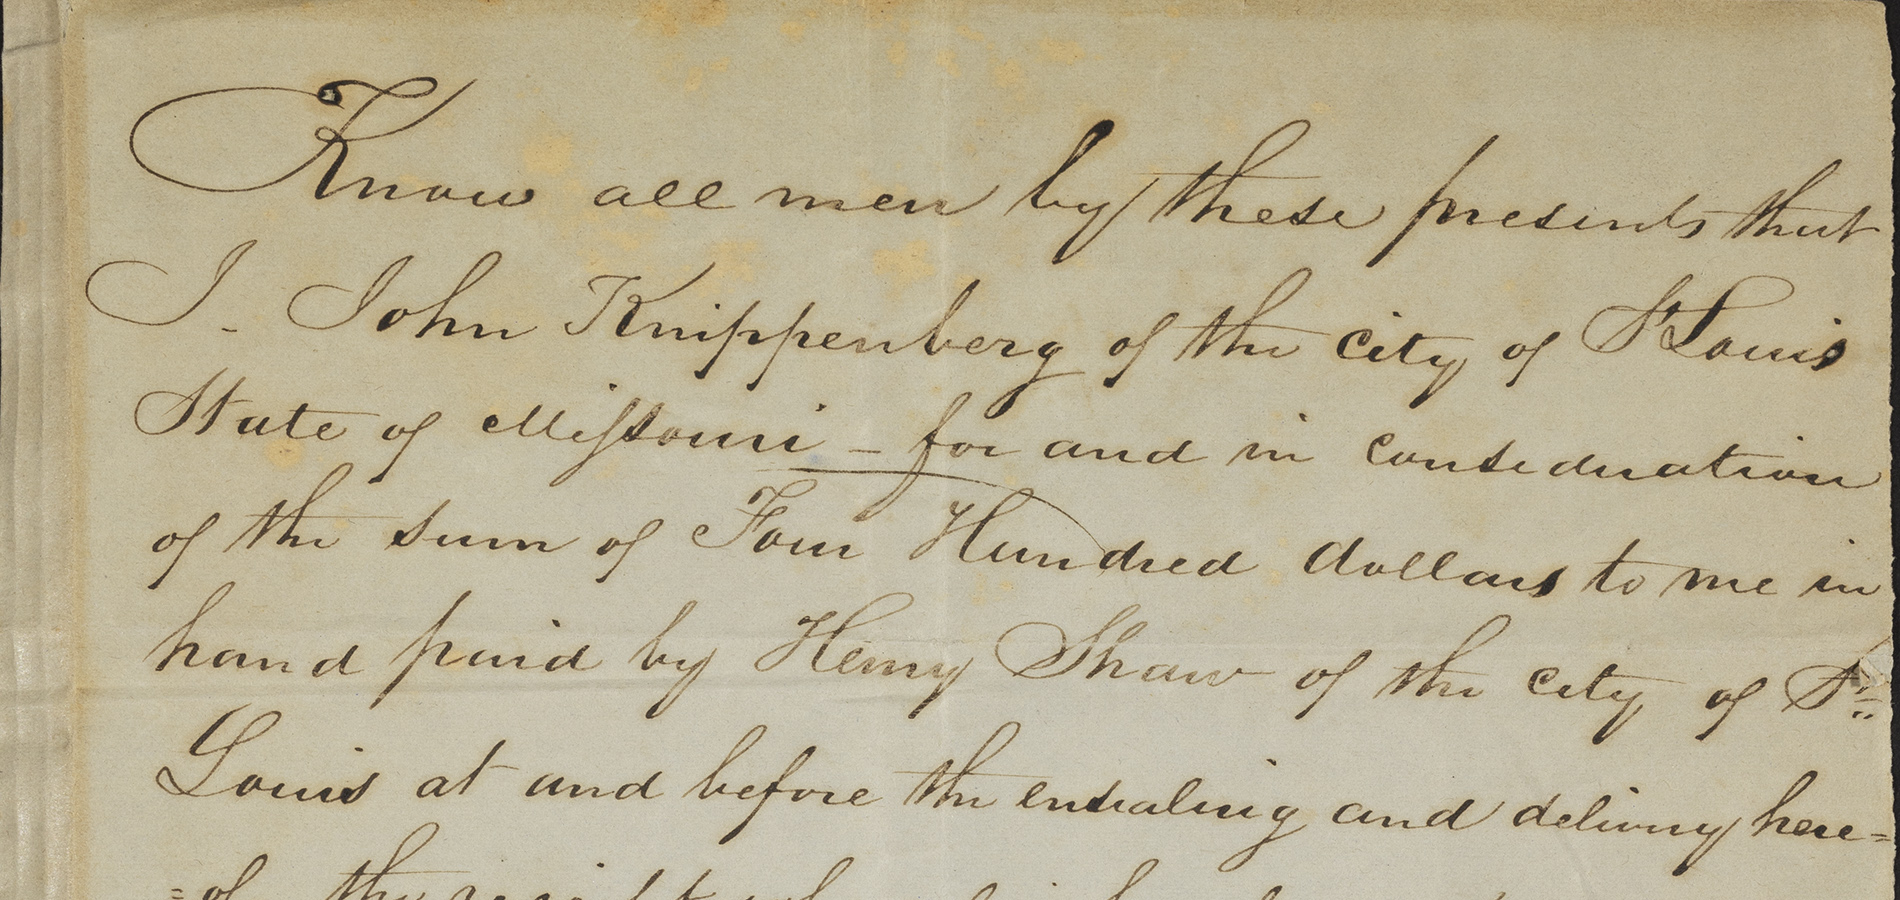 Know all men by these presents that
I. John Knippenberg of the city of St Louis
State of Missouri – for and in consideration
of the sum of Four Hundred dollars to me in
hand paid by Henry Shaw of the city of St
Louis at and before the ensealing and delivery here=
=of the receipt